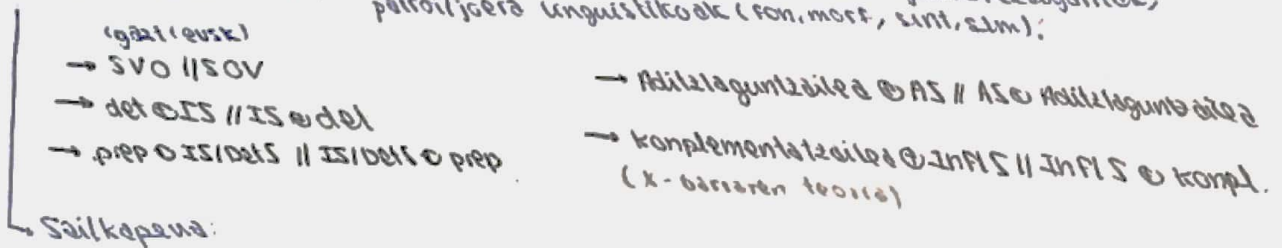 patroi/joera linguistikoak (fon, morf, sint, sem);
(gazt/eusk)
→ SVO // SOV
→ det ⊕ IS // IS ⊕ det
→ prep ⊕ IS/DetS // IS/DetS ⊕ prep
→ Aditzlaguntzailea ⊕ AS // AS ⊕ Aditzlaguntzailea
→ Konplementatzailea ⊕ InflS // InflS ⊕ konpl.
(X-barraren teoria)
↳ Sailkapena: